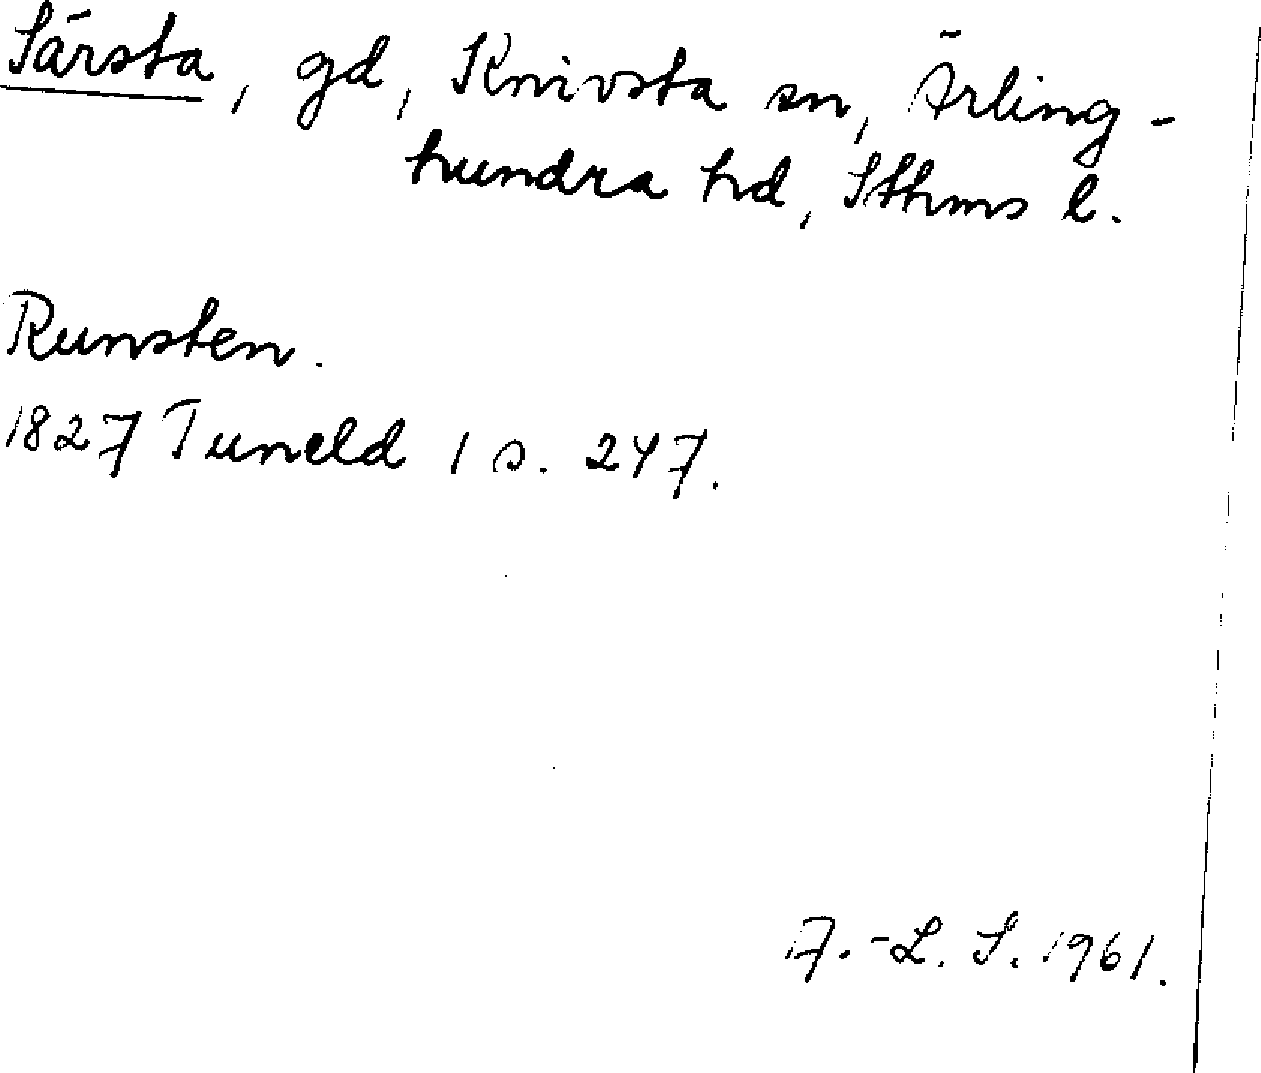 Särsta, gd, Knivsta sn, Ärling-
hundra hd, Sthms l.
Runsten.
1827 Tuneld 1 s. 247.
A.-L. S. 1961.